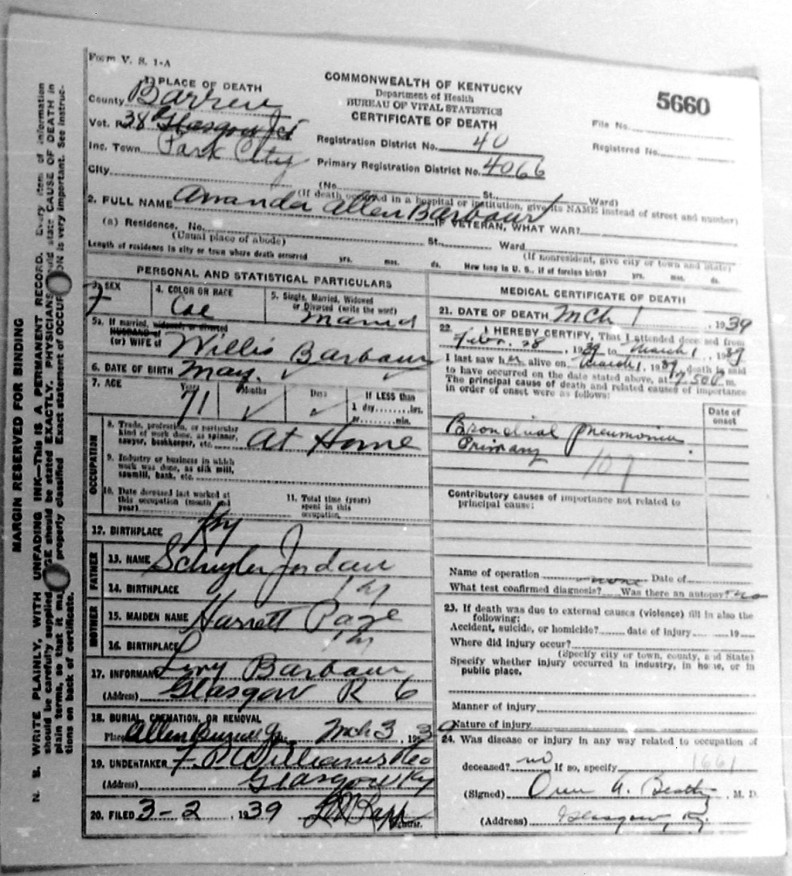 Form V. S. 1-A
COMMONWEALTH OF KENTUCKY
Department of Health
BUREAU OF VITAL STATISTICS
CERTIFICATE OF DEATH
5660
File No.
Registered No.
1 PLACE OF DEATH
County Barren
Vot. 38 Glasgow Jct
Inc. Town Park City
City
Registration District No. 40
Primary Registration District No. 4066
(No. St. Ward)
(If death occurred in a hospital or institution, give its NAME instead of street and number)
2. FULL NAME Amanda Allen Barbour
IF VETERAN, WHAT WAR?
(a) Residence. No. St. Ward
(Usual place of abode) (If nonresident, give city or town and state)
Length of residence in city or town where death occurred yrs. mos. ds. How long in U. S., if of foreign birth? yrs. mos. ds.
PERSONAL AND STATISTICAL PARTICULARS
3. SEX F
4. COLOR OR RACE Col
5. Single, Married, Widowed or Divorced (write the word) Married
5a. If married, widowed or divorced
HUSBAND of
(or) WIFE of Willis Barbour
6. DATE OF BIRTH May
7. AGE Years 71 Months Days If LESS than
1 day hrs.
or min.
OCCUPATION
8. Trade, profession, or particular kind of work done, as spinner, sawyer, bookkeeper, etc. At Home
9. Industry or business in which work was done, as silk mill, sawmill, bank, etc.
10. Date deceased last worked at this occupation (month and year)
11. Total time (years) spent in this occupation
12. BIRTHPLACE Ky
FATHER
13. NAME Schuyler Jordan
14. BIRTHPLACE Ky
MOTHER
15. MAIDEN NAME Harrett Page
16. BIRTHPLACE Ky
17. INFORMANT Levy Barbour
(Address) Glasgow R 6
18. BURIAL, CREMATION, OR REMOVAL
Place Allen Mch 3, 193
19. UNDERTAKER Williams
(Address) Glasgow Ky
20. FILED 3-2 1939
Registrar.
MEDICAL CERTIFICATE OF DEATH
21. DATE OF DEATH Mch 1, 1939
22. I HEREBY CERTIFY, That I attended deceased from
Febr. 28, 1939 to March 1, 1939
I last saw her alive on March 1, 1939, death is said
to have occurred on the date stated above, at m.
The principal cause of death and related causes of importance
in order of onset were as follows:
Date of onset
Bronchial pneumonia
Primary
107
Contributory causes of importance not related to
principal cause:
Name of operation none Date of
What test confirmed diagnosis? Was there an autopsy? no
23. If death was due to external causes (violence) fill in also the
following:
Accident, suicide, or homicide? date of injury 19
Where did injury occur?
(Specify city or town, county, and State)
Specify whether injury occurred in industry, in home, or in
public place.
Manner of injury
Nature of injury
24. Was disease or injury in any way related to occupation of
deceased? no If so, specify 1661
(Signed) A. Beatty, M. D.
(Address) Glasgow, Ky.
MARGIN RESERVED FOR BINDING
N. B. WRITE PLAINLY, WITH UNFADING INK—THIS IS A PERMANENT RECORD. Every item of information
should be carefully supplied. AGE should be stated EXACTLY. PHYSICIANS should state CAUSE OF DEATH in
plain terms, so that it may properly classified. Exact statement of OCCUPATION is very important. See instruc-
tions on back of certificate.